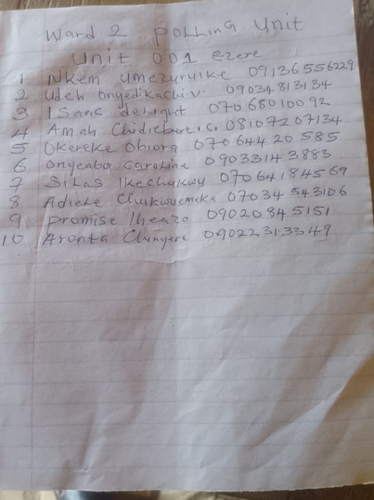 Ward 2 polling Unit
Unit 001 ezere
1 Nkem Umezuruike 09136556229
2 Udeh Onyedikachi V. 09034813134
3 Isaac delight 07068010092
4 Amah Chidiebere, C. 08107207134
5 Okereke Obiora 07064420585
6 Onyeabo Caroline 09033143883
7 Silas Ikechukwu 07064184569
8 Adieke Chukwuemeka 07034543106
9 Promise Iheazo 09020845151
10 Aronta Chinyere 09022313349